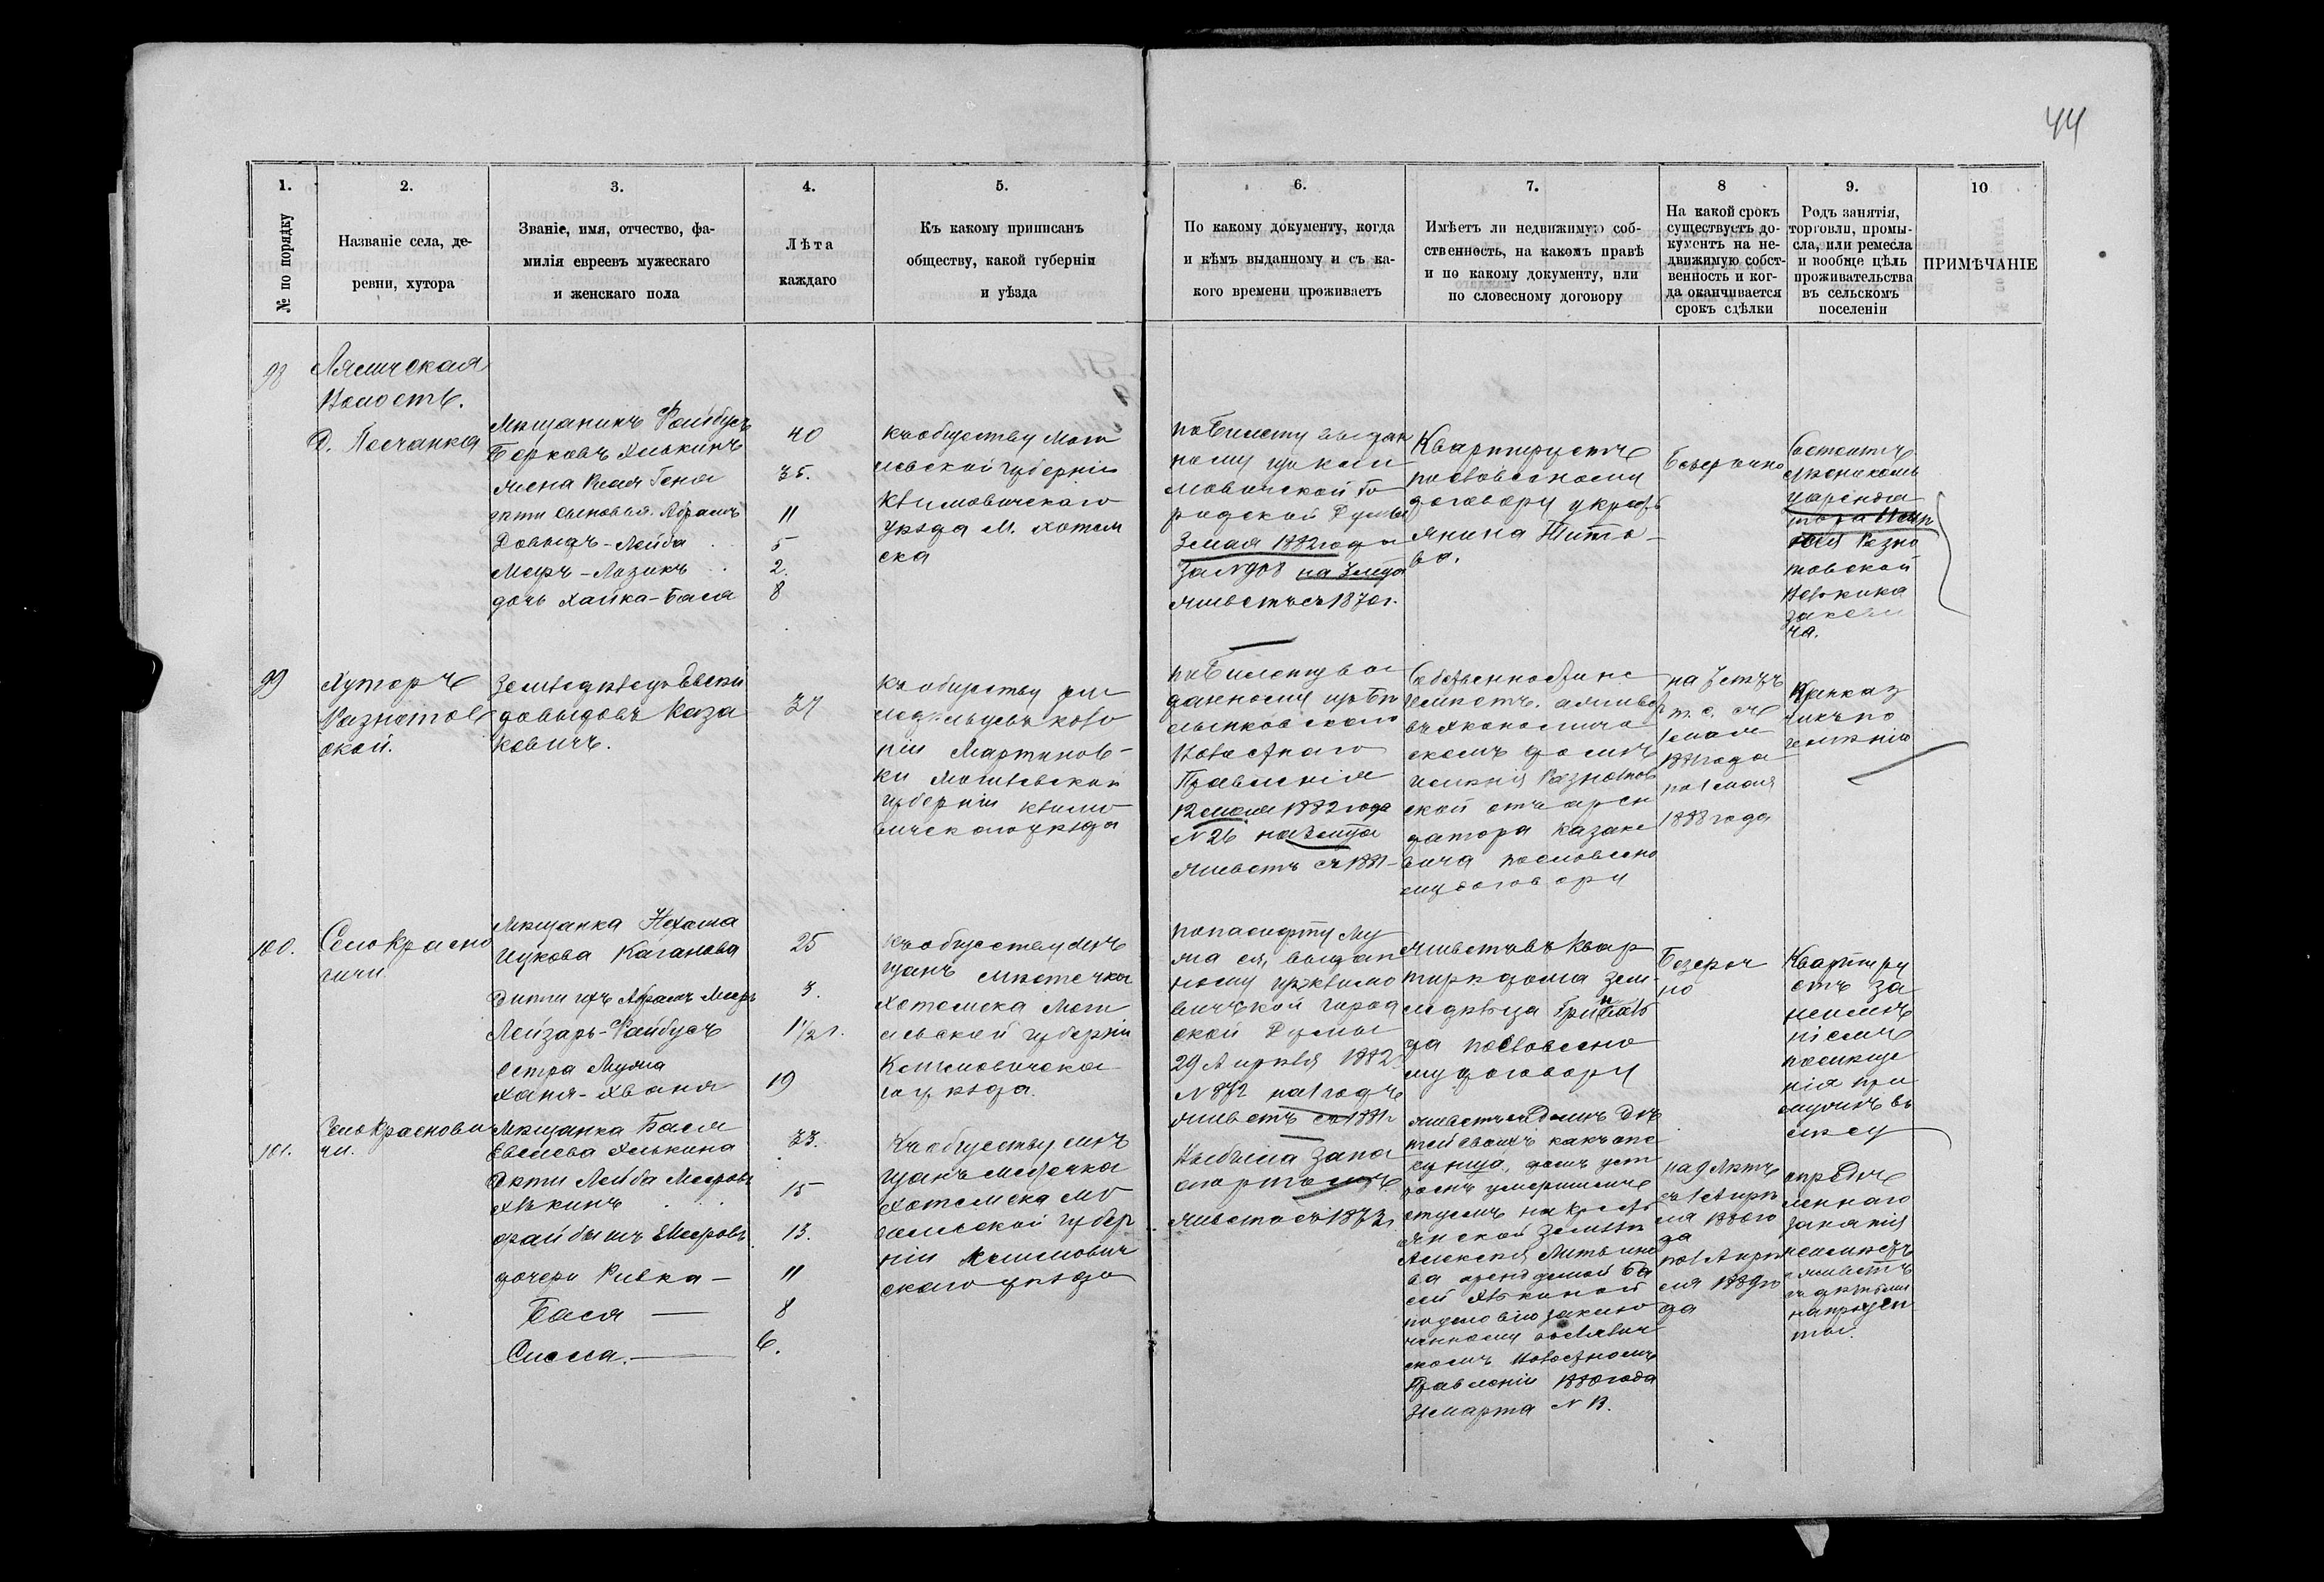 44
1.
2.
3.
4.
5.
6.
7.
8
9.
10
№ по порядку
Названіе села, де-
ревни, хутора
Званіе, имя, отчество, фа-
милія евреевъ мужескаго
и женскаго пола
Лѣта
каждаго
Къ какому приписанъ
обществу, какой губерніи
и уѣзда
По какому документу, когда
и кѣмъ выданному и съ ка-
кого времени проживаетъ
Имѣетъ ли недвижимую соб-
ственность, на какомъ правѣ
и по какому документу, или
по словесному договору
На какой срокъ
существуетъ до-
кументъ на не-
движимую собст-
венность и ког-
да оканчивается
срокъ сдѣлки
Родъ занятія,
торговли, промы-
сла, или ремесла
и вообще цѣль
проживательства
въ сельскомъ
поселеніи
ПРИМѢЧАНІЕ
98
Лялическая
Волость.
Д. Песчанка
Мѣщанинъ Файбусъ
Берковъ Хлькинъ
жена Гена
дѣти сыновья. Абрамъ
Довыдъ-Лейба
Меръ-Лазикъ
дочь Хайка-Бася
40
35.
11
5
2.
8
къ обществу Моги
левской губерніи
Климовичскаго
уѣзда М. Хотим
ска
по Билету выдан
ному изъ Кли
мовичской Го
родской Думы
3 мая 1882 года
за № 908 на
живетъ съ 1870 г.
Квартируетъ
по словесному
договору у кресть
янина Тито-
ва.
Безсрочно
Состоитъ
у аренда
тора
99
Хуторъ
Разнотов
ской.
Земледѣлецъ Евсей
Довыдовъ Каза
кевичъ.
37
къ обществу зем
ледѣльцевъ коло
ніи Мартинов-
ки Могилевской
губерніи Климо
вичскаго уѣзда
по Билету вы
данному изъ
Волостнаго
Правленія
12 мая 1882 года
№ 26 на
живетъ съ 1881-
Собственности не
имѣетъ. а живетъ
въ экономиче
скомъ домѣ
имѣнія Разнотов
ской отъ арен
датора Казаке
вича по словесно
му договору
на 7 лѣтъ
т. е. съ
1 мая
1881 года
по 1 мая
1888 года
Приказ
чикъ по
имѣнію
100.
Село Красно
вичи
Мѣщанка Нехама
Ицкова Каганова
Дѣти ихъ Абрамъ Меръ
Лейзаръ-Файбусъ
Сетра Мужа
Ханя-Хваня
25
3.
1 1/2 г.
19
къ обществу мѣ
щанъ мѣстечка
Хотимска Моги
левской губерніи
Климовичска
го уѣзда.
по паспорту му
жа ея, выдан
ному изъ Климо
вичской город
ской Думы
29 Апрѣля 1882
№ 872 на 1 годъ
живетъ съ 1881 г
живетъ въ квар
тирѣ дома зем
ледѣльца
по словесно
му договору
Безсроч
но
Квартиру
етъ за
неимѣ
ніемъ
помѣще
нія при
мужѣ въ
лѣсу
101.
Село Краснови
чи.
Мѣщанка Бася
Евсеева Хлькина
Дѣти Лейба Меровъ
Хлькинъ
Файбишъ Меровъ
дочери Ривка -
Бася -
Сисля. -
33.
15
13.
11
8
6.
Къ обществу мѣ
щанъ мѣстечка
Хотимска Мо
гилевской губер
ніи Климович
скаго уѣзда
Выбыла за па
спортомъ
живетъ съ 1873 г.
живетъ въ домѣ дѣ
тей своихъ какъ опе
кунша, домъ уст
роенъ умершимъ
мужемъ на кресть
янской землѣ
Алексѣя Литвино
ва арендуемой Ба
сей Хлькиной
по условію заклю
ченному въ Лялич
скомъ Волостномъ
Правленіи 1880 года
31 марта № 13.
на 9 лѣтъ
съ 1 Апрѣ
ля 1880 го
да
по 1 Апрѣ
ля 1889 го
да
опредѣ
леннаго
занятія
неимѣетъ
живетъ
съ дѣтьми
на процен
ты.